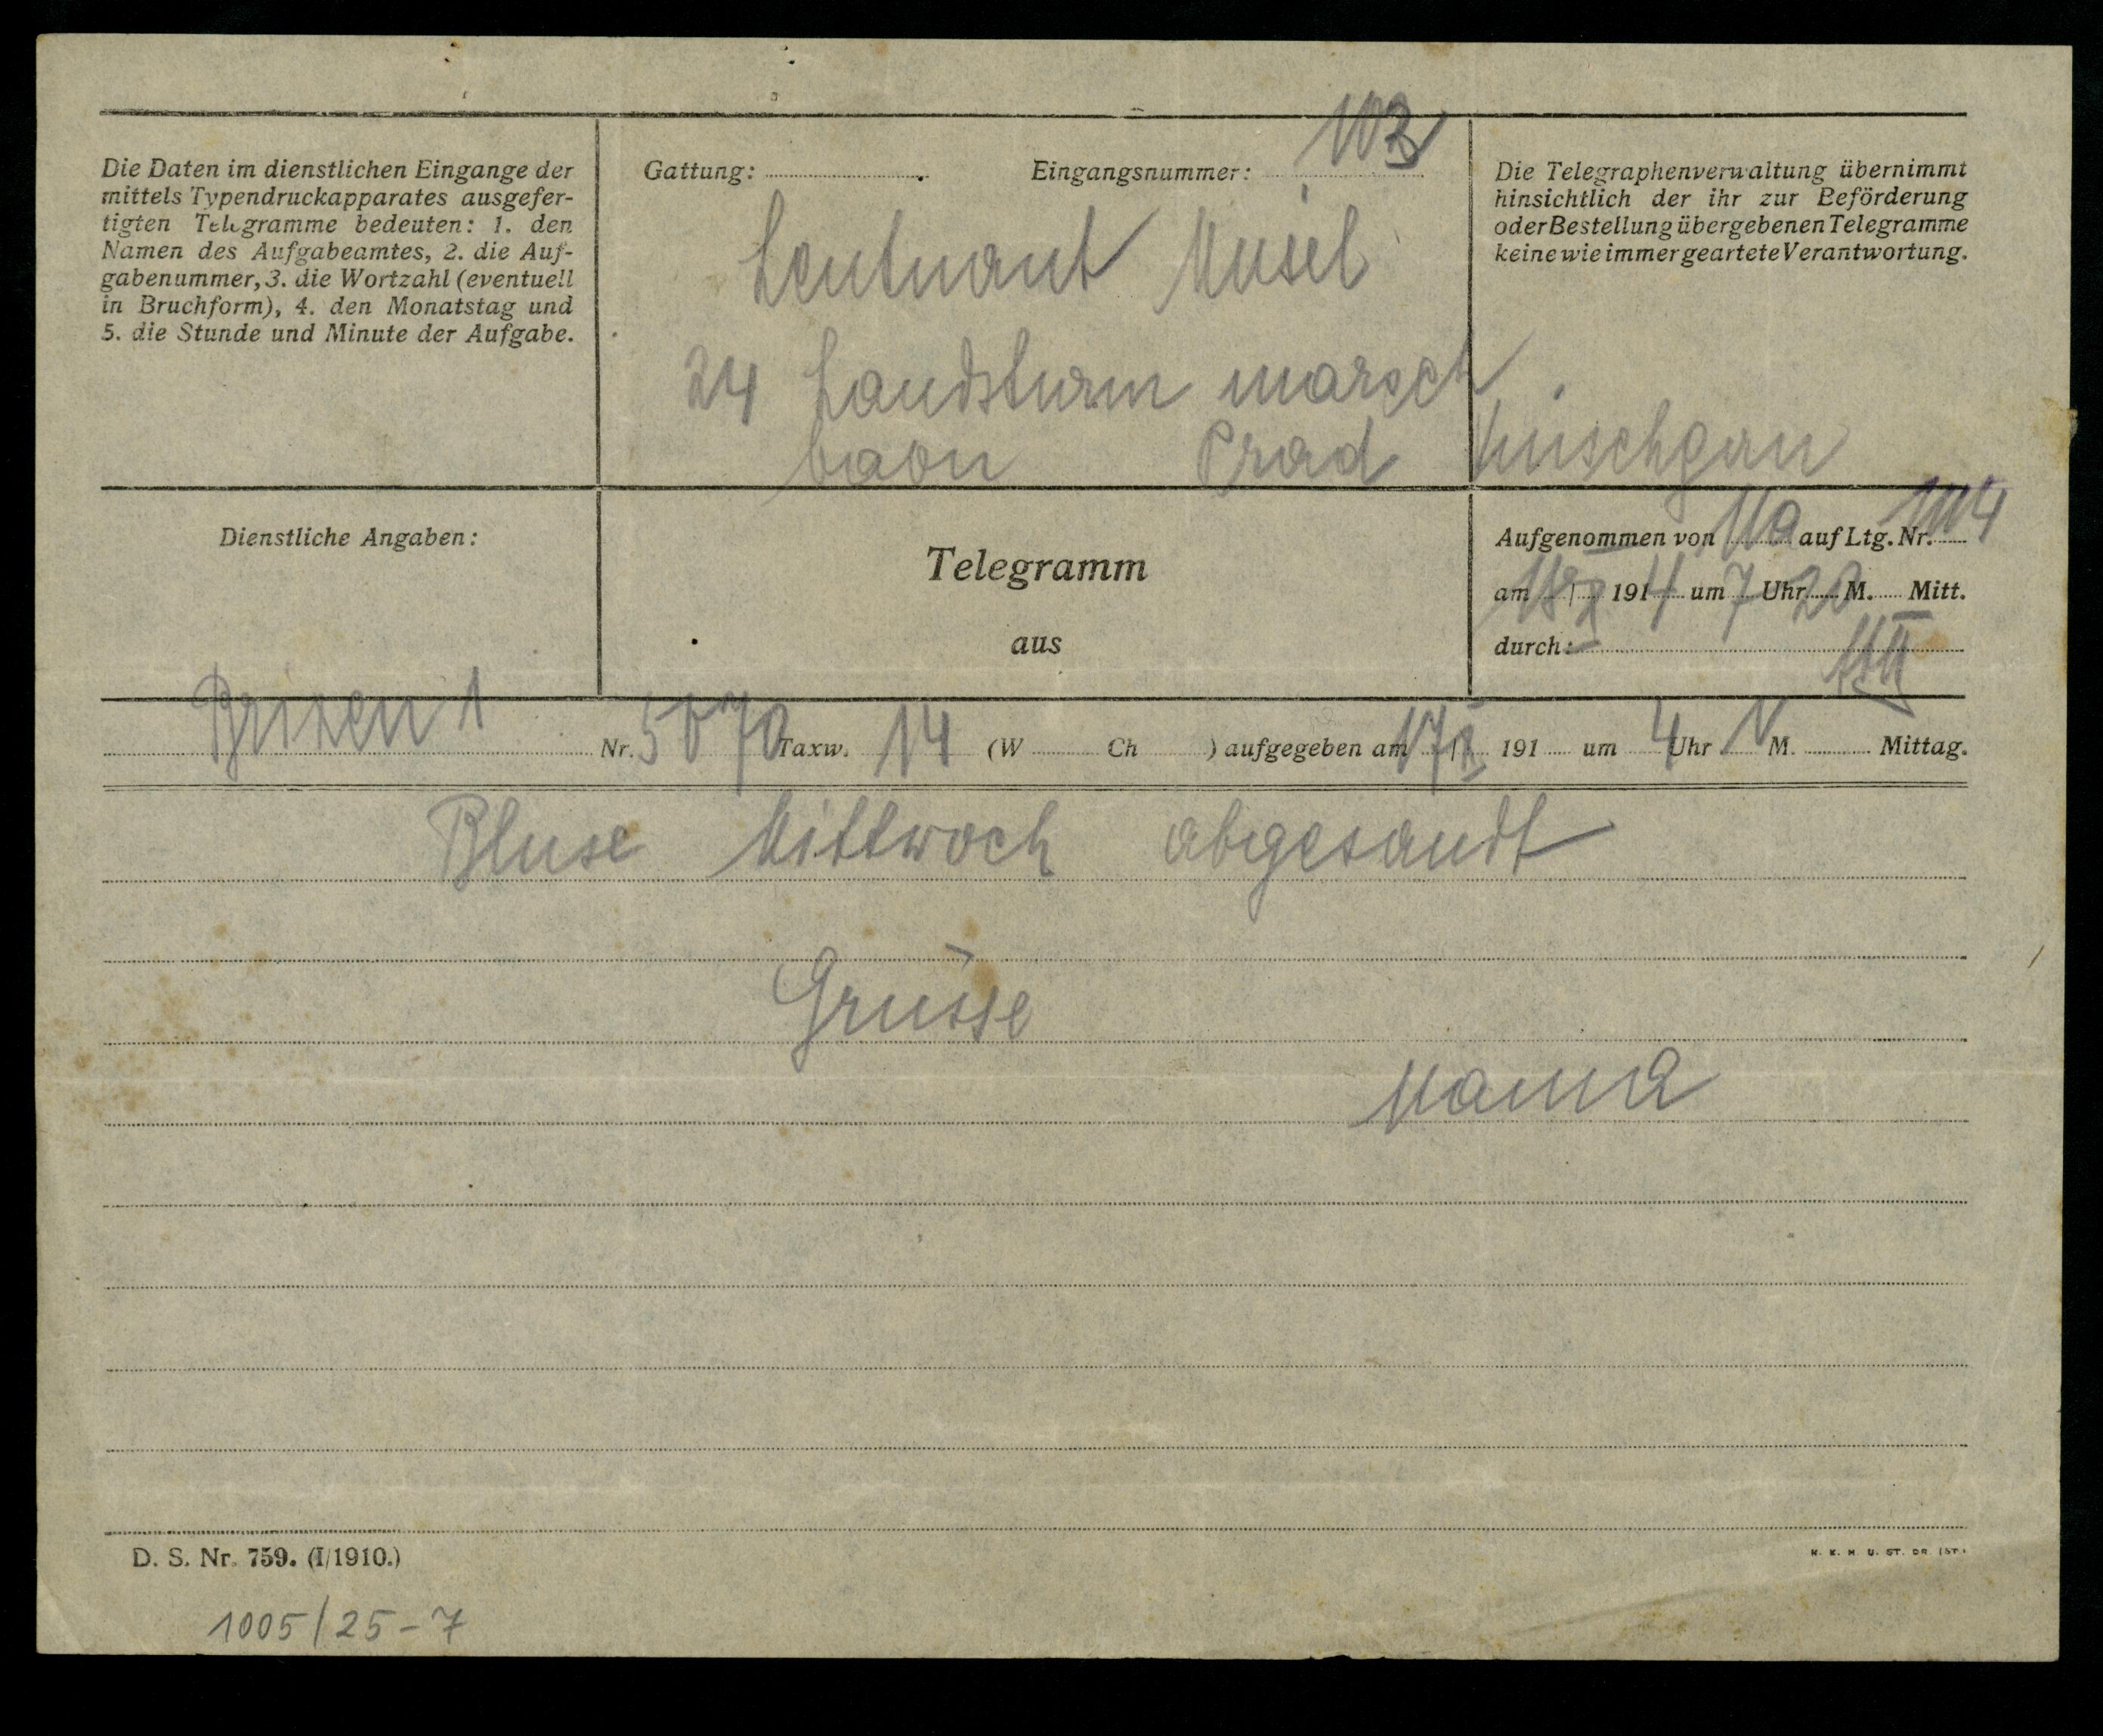 Die Daten im dienstlichen Eingange der
mittels Typendruckapparates ausgefer-
tigten Telegramme bedeuten: 1. den
Namen des Aufgabeamtes, 2. die Auf-
gabenummer, 3. die Wortzahl (eventuell
in Bruchform), 4. den Monatstag und
5. die Stunde und Minute der Aufgabe.
Gattung: Eingangsnummer: 103
Leutnant Musil
24 Landsturm marsch
baon Prad
Die Telegraphenverwaltung übernimmt
hinsichtlich der ihr zur Beförderung
oder Bestellung übergebenen Telegramme
keine wie immer geartete Verantwortung.
Dienstliche Angaben:
Telegramm
aus
Aufgenommen von auf Ltg. Nr.
am 18/X 1914 um 7 Uhr 20 M. Mitt.
durch:
Brixen 1 Nr. 5070 Taxw. 14 (W Ch ) aufgegeben am 17/X 191 um 4 Uhr N M. Mittag.
Bluse Mittwoch abgesandt
Grüsse
Mama
D. S. Nr. 759. (I/1910.)
1005/25-7